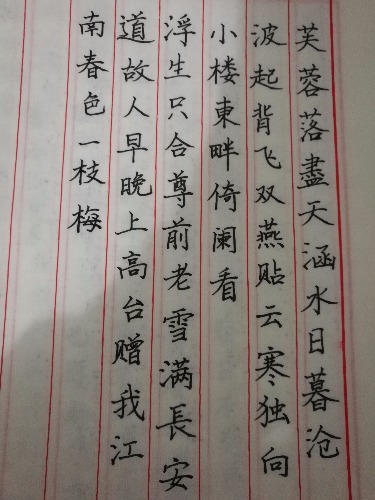 芙蓉落盡天涵水日暮沧
波起背飞双燕贴云寒独向
小楼東畔倚阑看
浮生只合尊前老雪满長安
道故人早晚上高台赠我江
南春色一枝梅